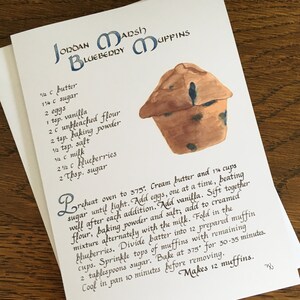 Jordan Marsh
Blueberry Muffins
c butter
1¼ c sugar
2 eggs
1 tsp. vanilla
2 c unbleached flour
2 tsp. baking powder
½ tsp. salt
½ c milk
2 ½ c blueberries
2 Tbsp. sugar
Preheat oven to 375°. Cream butter and 1¼ cups
sugar until light. Add eggs, one at a time, beating
well after each addition. Add vanilla. Sift together
flour, baking powder and salt, add to creamed
mixture alternately with the milk. Fold in the
blueberries. Divide batter into 12 prepared muffin
cups. Sprinkle tops of muffins with remaining
2 tablespoons sugar. Bake at 375° for 30-35 minutes.
Cool in pan 10 minutes before removing.
Makes 12 muffins.